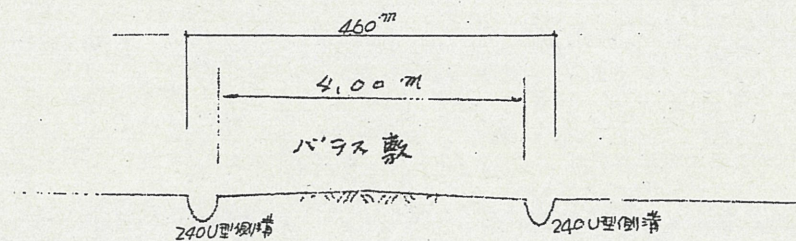 460m
4,00m
バラス敷
240U型側溝
240U型側溝